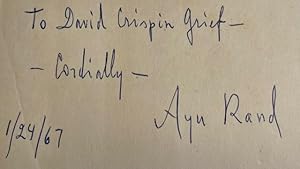 To David Crispin Grief —
— Cordially —
Ayn Rand
1/24/67